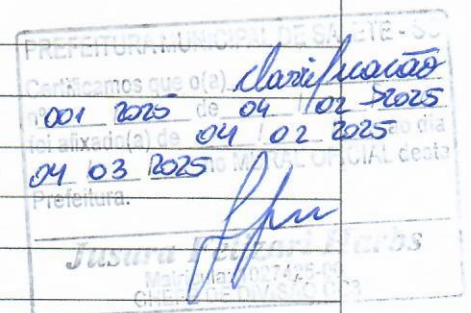 PREFEITURA MUNICIPAL DE SALETE - SC
Certificamos que o(a) classificação
nº 001 2025 de 04 / 02 2025
foi afixado(a) de 04 / 02 2025 ao dia
04 03 2025 no MURAL OFICIAL deste
Prefeitura.
Jusara
CHEFE DE DIVISÃO